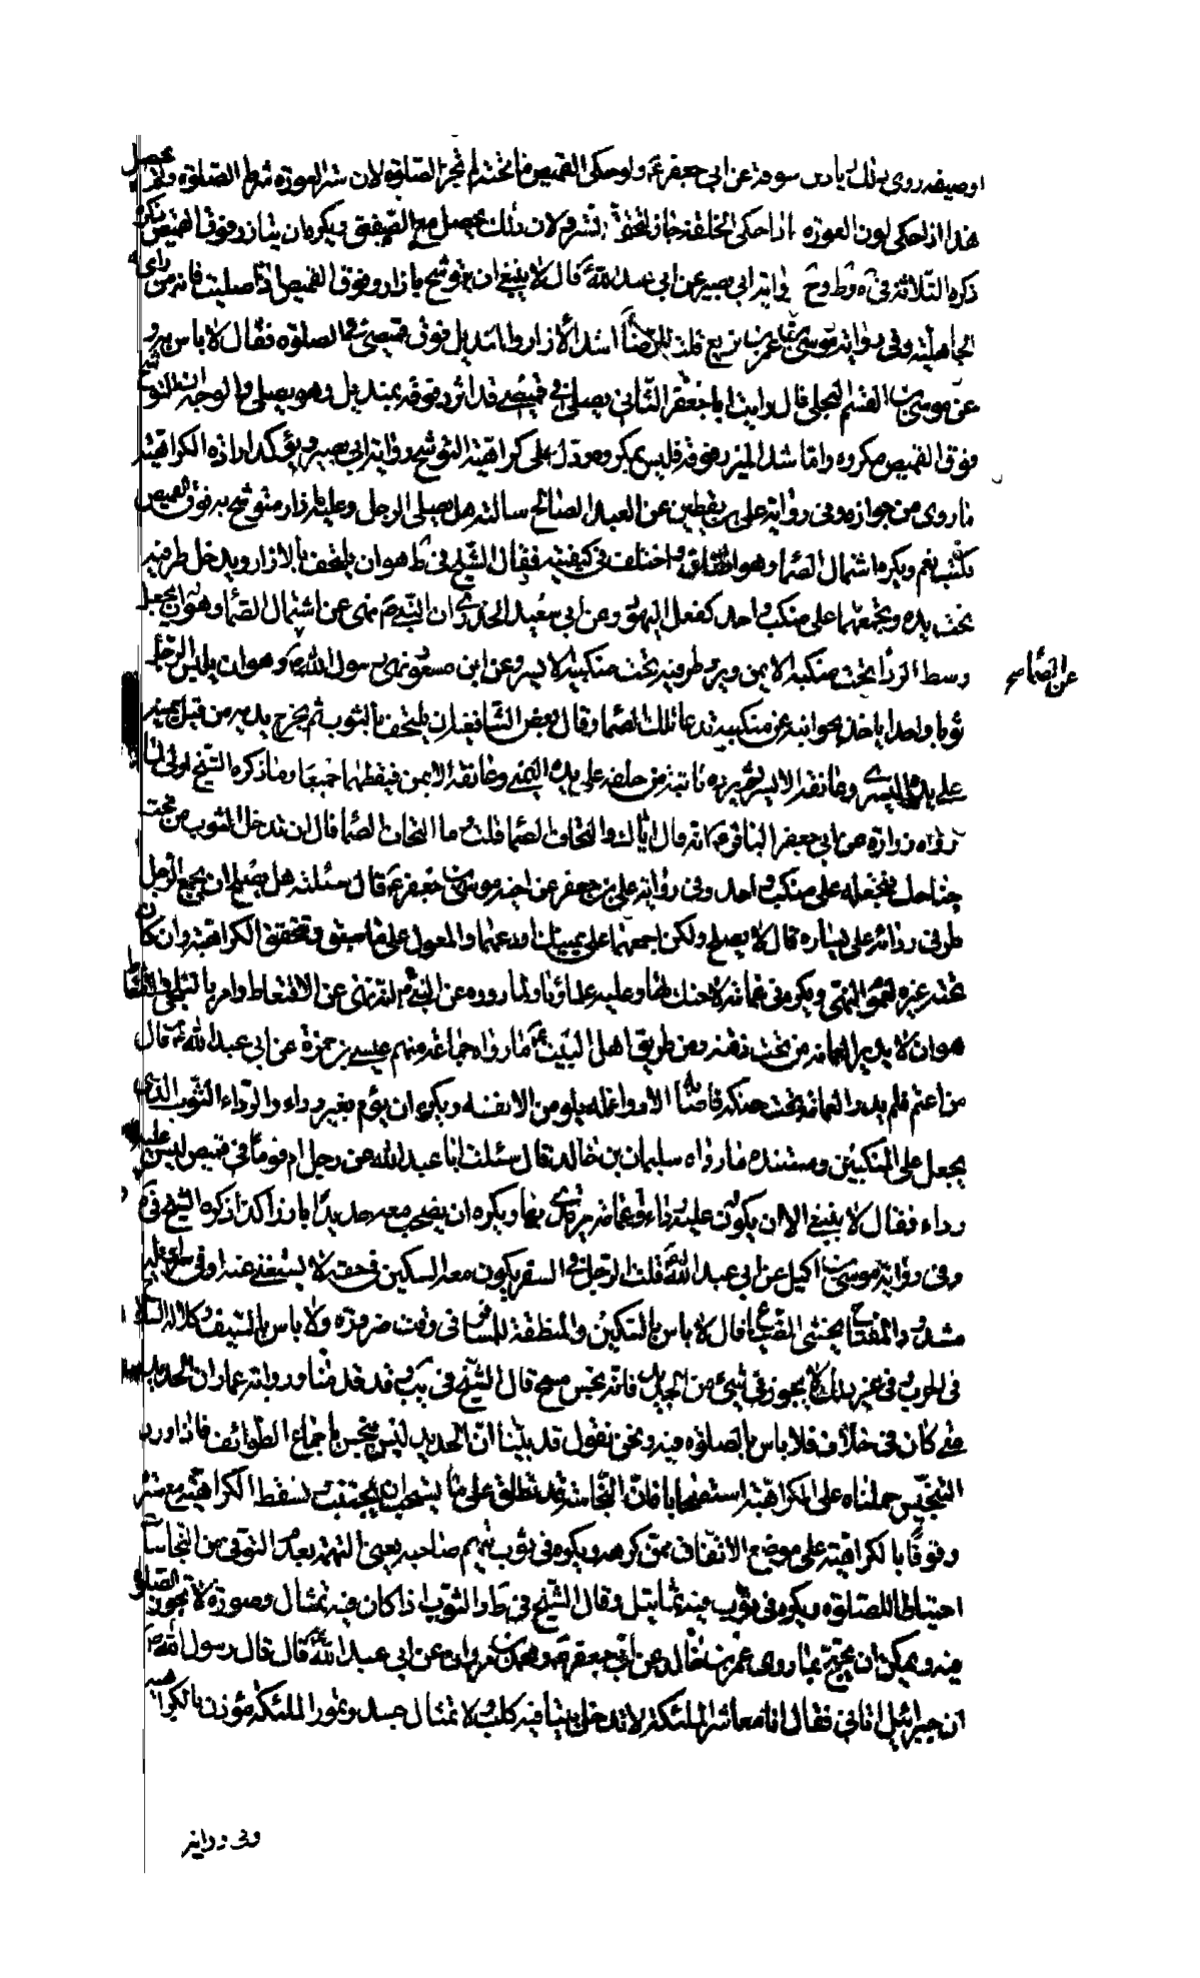 او صيفه روى ذلك زياد بن سوقة عن ابي جعفر ع ولو حكى القميص ما تحته لم تجز الصلوة لان ستر العورة شرط الصلوة ولم يحصل
هذا اذا حكى لون العورة اذا حكى الخلقة جاز لان ذلك يحصل مع الصفيق ويكره ان يتازر فوق القميص
ذكره الثلاثة في رواية ابي بصير عن ابي عبد الله ع قال لا ينبغي ان تتوشح بازار فوق القميص اذا صليت فانه من زي
الجاهلية وفي رواية موسى بن عمر بن بزيع قلت للرضا ع اشد الازار والمنديل فوق قميصي في الصلوة فقال لا باس به و
عن موسى بن القسم البجلي قال رايت ابا جعفر الثاني يصلي في قميص قد اتزر فوقه بمنديل وهو يصلي والوجه ان التوشح
فوق القميص مكروه واما شد الميزر فوقه فليس بمكروه ويدل على كراهية التوشح رواية ابي بصير ويؤكد ارادة الكراهية
ما روى من جوازه وفي رواية علي بن يقطين عن العبد الصالح سالته هل يصلي الرجل وعليه ازار متوشح به فوق القميص
فكتب نعم ويكره اشتمال الصماء وهو اتفاق واختلف في كيفيته فقال الشيخ في ط هو ان يلتحف بالازار ويدخل طرفيه
تحت يده ويجمعهما على منكب واحد كفعل اليهود وعن ابي سعيد الخدري ان النبي ص نهى عن اشتمال الصماء وهو ان يجعل
وسط الرداء تحت منكبه الايمن ويرد طرفيه تحت منكبه الايسر وعن ابن مسعود نهى رسول الله ص وهو ان يلبس الرجل
عن الصماء
ثوبا واحدا ياخذ بجوانبه عن منكبيه تدعا تلك الصماء وقال بعض الشافعية ان يلتحف بالثوب ثم يخرج يديه من قبل يمينه
على يده اليسرى وعاتقه الايسر ثم يرده ثانية من خلفه على يده اليمنى وعاتقه الايمن فيغطيهما جميعا وما ذكره الشيخ اولى لما
رواه زرارة عن ابي جعفر الباقر ع انه قال اياك والتحاف الصماء قلت وما التحاف الصماء قال ان تدخل الثوب من تحت
جناحك فتجعله على منكب واحد وفي رواية علي بن جعفر عن اخيه موسى بن جعفر ع قال سئلته هل يصلح ان يجمع الرجل
طرفي ردائه على يساره قال لا يصلح ولكن اجمعهما على يمينك او دعهما والمعول على ما سبق وتتحقق الكراهية وان كان
تحته غيره لعموم النهي ويكره في عمامة لا حنك لها وعليه علماؤنا ولما رووه عن النبي ص انه نهى عن الاقتعاط وامر بالتلحي والاقتعاط
هو ان لا يدير العمامة من تحت ذقنه ومن طريق اهل البيت ع ما رواه جماعة منهم عيسى بن حمزة عن ابي عبد الله ع قال
من اعتم فلم يدر العمامة تحت حنكه فاصابه الم لا دواء له فلا يلومن الا نفسه ويكره ان يؤم بغير رداء والرداء الثوب الذي
يجعل على المنكبين ومستنده ما رواه سليمان بن خالد قال سئلت ابا عبد الله عن رجل ام قوما في قميص ليس عليه
رداء فقال لا ينبغي الا ان يكون عليه رداء او عمامة يرتدي بها ويكره ان يصحب معه حديدا بارزا كذا ذكره الشيخ في
وفي رواية موسى بن اكيل عن ابي عبد الله ع قلت الرجل في السفر يكون معه السكين في خفه لا يستغنى عنه او في سراويله
مشدودا والمفتاح يخشى الضياع قال لا باس بالسكين والمنطقة للمسافر في وقت ضرورة ولا باس بالسيف وكل الة السلاح
في الحرب وفي غير ذلك لا يجوز في شيء من الحديد فانه نجس مسخ قال الشيخ في يب وقد قدمنا ورواية عمار ان الحديد
متى كان في غلاف فلا باس بالصلوة فيه ونحن نقول قد بينا ان الحديد ليس بنجس باجماع الطوائف فاذا ورد
التنجيس حملناه على الكراهية استصحابا فان النجاسة قد تطلق على ما يستحب ان يجتنب وتسقط الكراهية مع ستره
وقوفا بالكراهية على موضع الاتفاق ممن كرهه ويكره في ثوب يتهم صاحبه يعني التهمة بعدم التوقي من النجاسات
احتياطا للصلوة ويكره في ثوب فيه تماثيل وقال الشيخ في ط والثوب اذا كان فيه تمثال وصورة لا تجوز الصلوة
فيه ويمكن ان يحتج بما روى عمر بن خالد عن ابي جعفر ع ومحمد بن مروان عن ابي عبد الله ع قال قال رسول الله ص
ان جبرائيل اتاني فقال انا معاشر الملئكة لا تدخل بيتا فيه كلب ولا تمثال جسد ونفور الملئكة مؤذن بالكراهية
وفي رواية